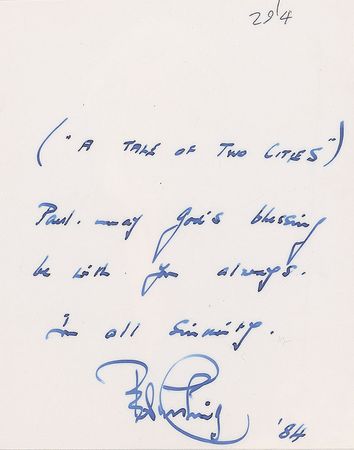 29/4
("A TALE OF TWO CITIES")
Paul. may God's blessing
be with you always.
In all sincerity.
Peter Cushing
'84